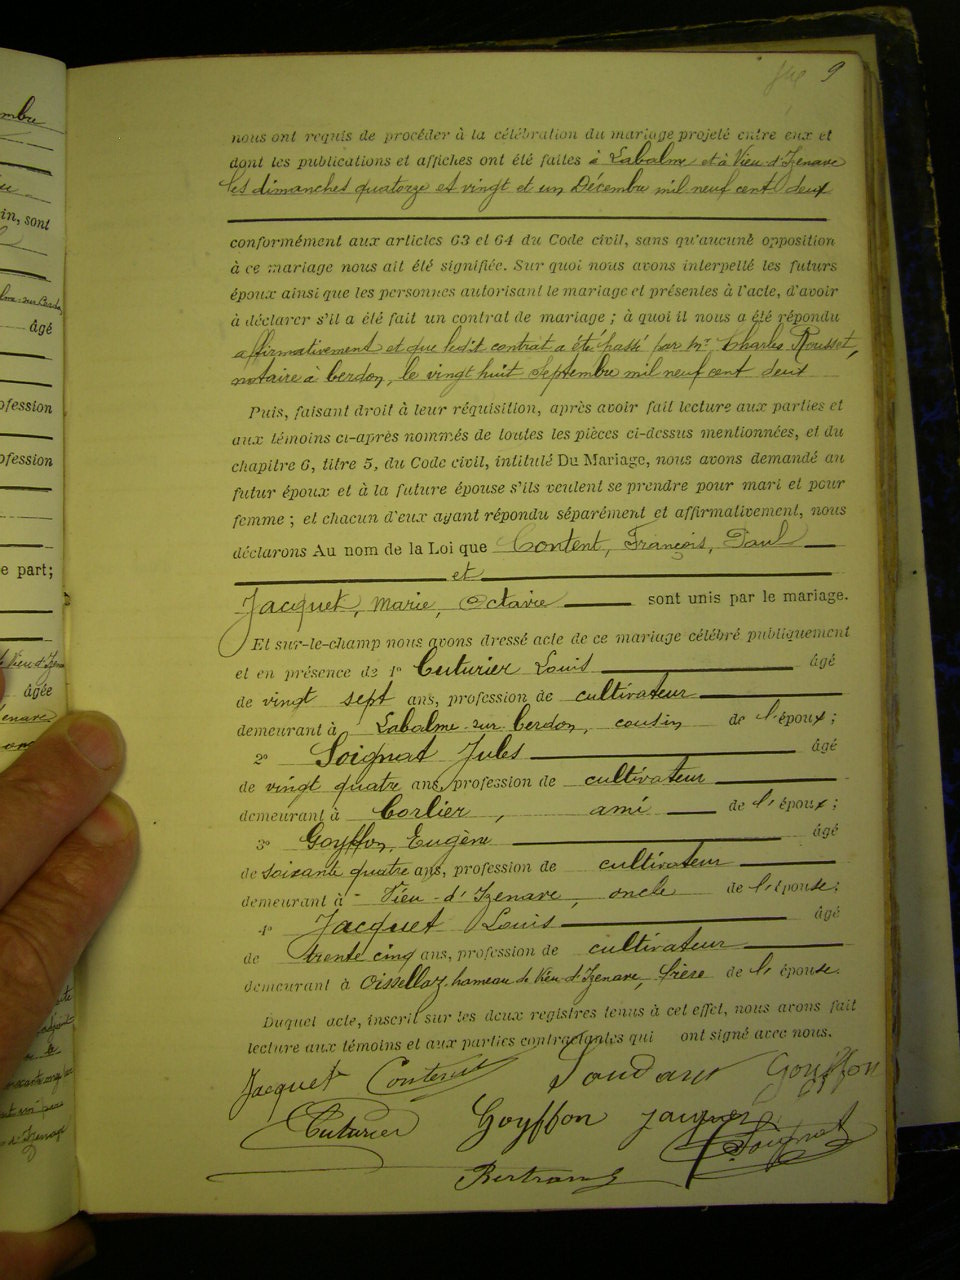 9
nous ont requis de procéder à la célébration du mariage projeté entre eux et
dont les publications et affiches ont été faites à Labalme et à Vieu-d'Izenave
les dimanches quatorze et vingt et un Décembre mil neuf cent deux
conformément aux articles 63 et 64 du Code civil, sans qu'aucune opposition
à ce mariage nous ait été signifiée. Sur quoi nous avons interpellé les futurs
époux ainsi que les personnes autorisant le mariage et présentes à l'acte, d'avoir
à déclarer s'il a été fait un contrat de mariage ; à quoi il nous a été répondu
affirmativement et que ledit contrat a été passé par Mr Charles Rousset,
notaire à Cerdon, le vingt huit Septembre mil neuf cent deux
Puis, faisant droit à leur réquisition, après avoir fait lecture aux parties et
aux témoins ci-après nommés de toutes les pièces ci-dessus mentionnées, et du
chapitre 6, titre 5, du Code civil, intitulé Du Mariage, nous avons demandé au
futur époux et à la future épouse s'ils veulent se prendre pour mari et pour
femme ; et chacun d'eux ayant répondu séparément et affirmativement, nous
déclarons Au nom de la Loi que Content, François, Paul
et
Jacquet, Marie, Octavie sont unis par le mariage.
Et sur-le-champ nous avons dressé acte de ce mariage célébré publiquement
et en présence de 1º Cuturier Louis âgé
de vingt sept ans, profession de cultivateur
demeurant à Labalme-sur-Cerdon, cousin de l'époux ;
2º Soignat Jules âgé
de vingt quatre ans, profession de cultivateur
demeurant à Corlier, ami de l'époux ;
3º Goyffon, Eugène âgé
de soixante quatre ans, profession de cultivateur
demeurant à Vieu-d'Izenave, oncle de l'épouse ;
4º Jacquet Louis âgé
de trente cinq ans, profession de cultivateur
demeurant à Oissellaz hameau de Vieu d'Izenave, frère de l'épouse.
Duquel acte, inscrit sur les deux registres tenus à cet effet, nous avons fait
lecture aux témoins et aux parties contractantes qui ont signé avec nous.
Jacquet Content Goyffon
Cuturier Goyffon Jacquet Soignat
Bertrand
in, sont
âgé
ofession
ofession
e part;
âgée